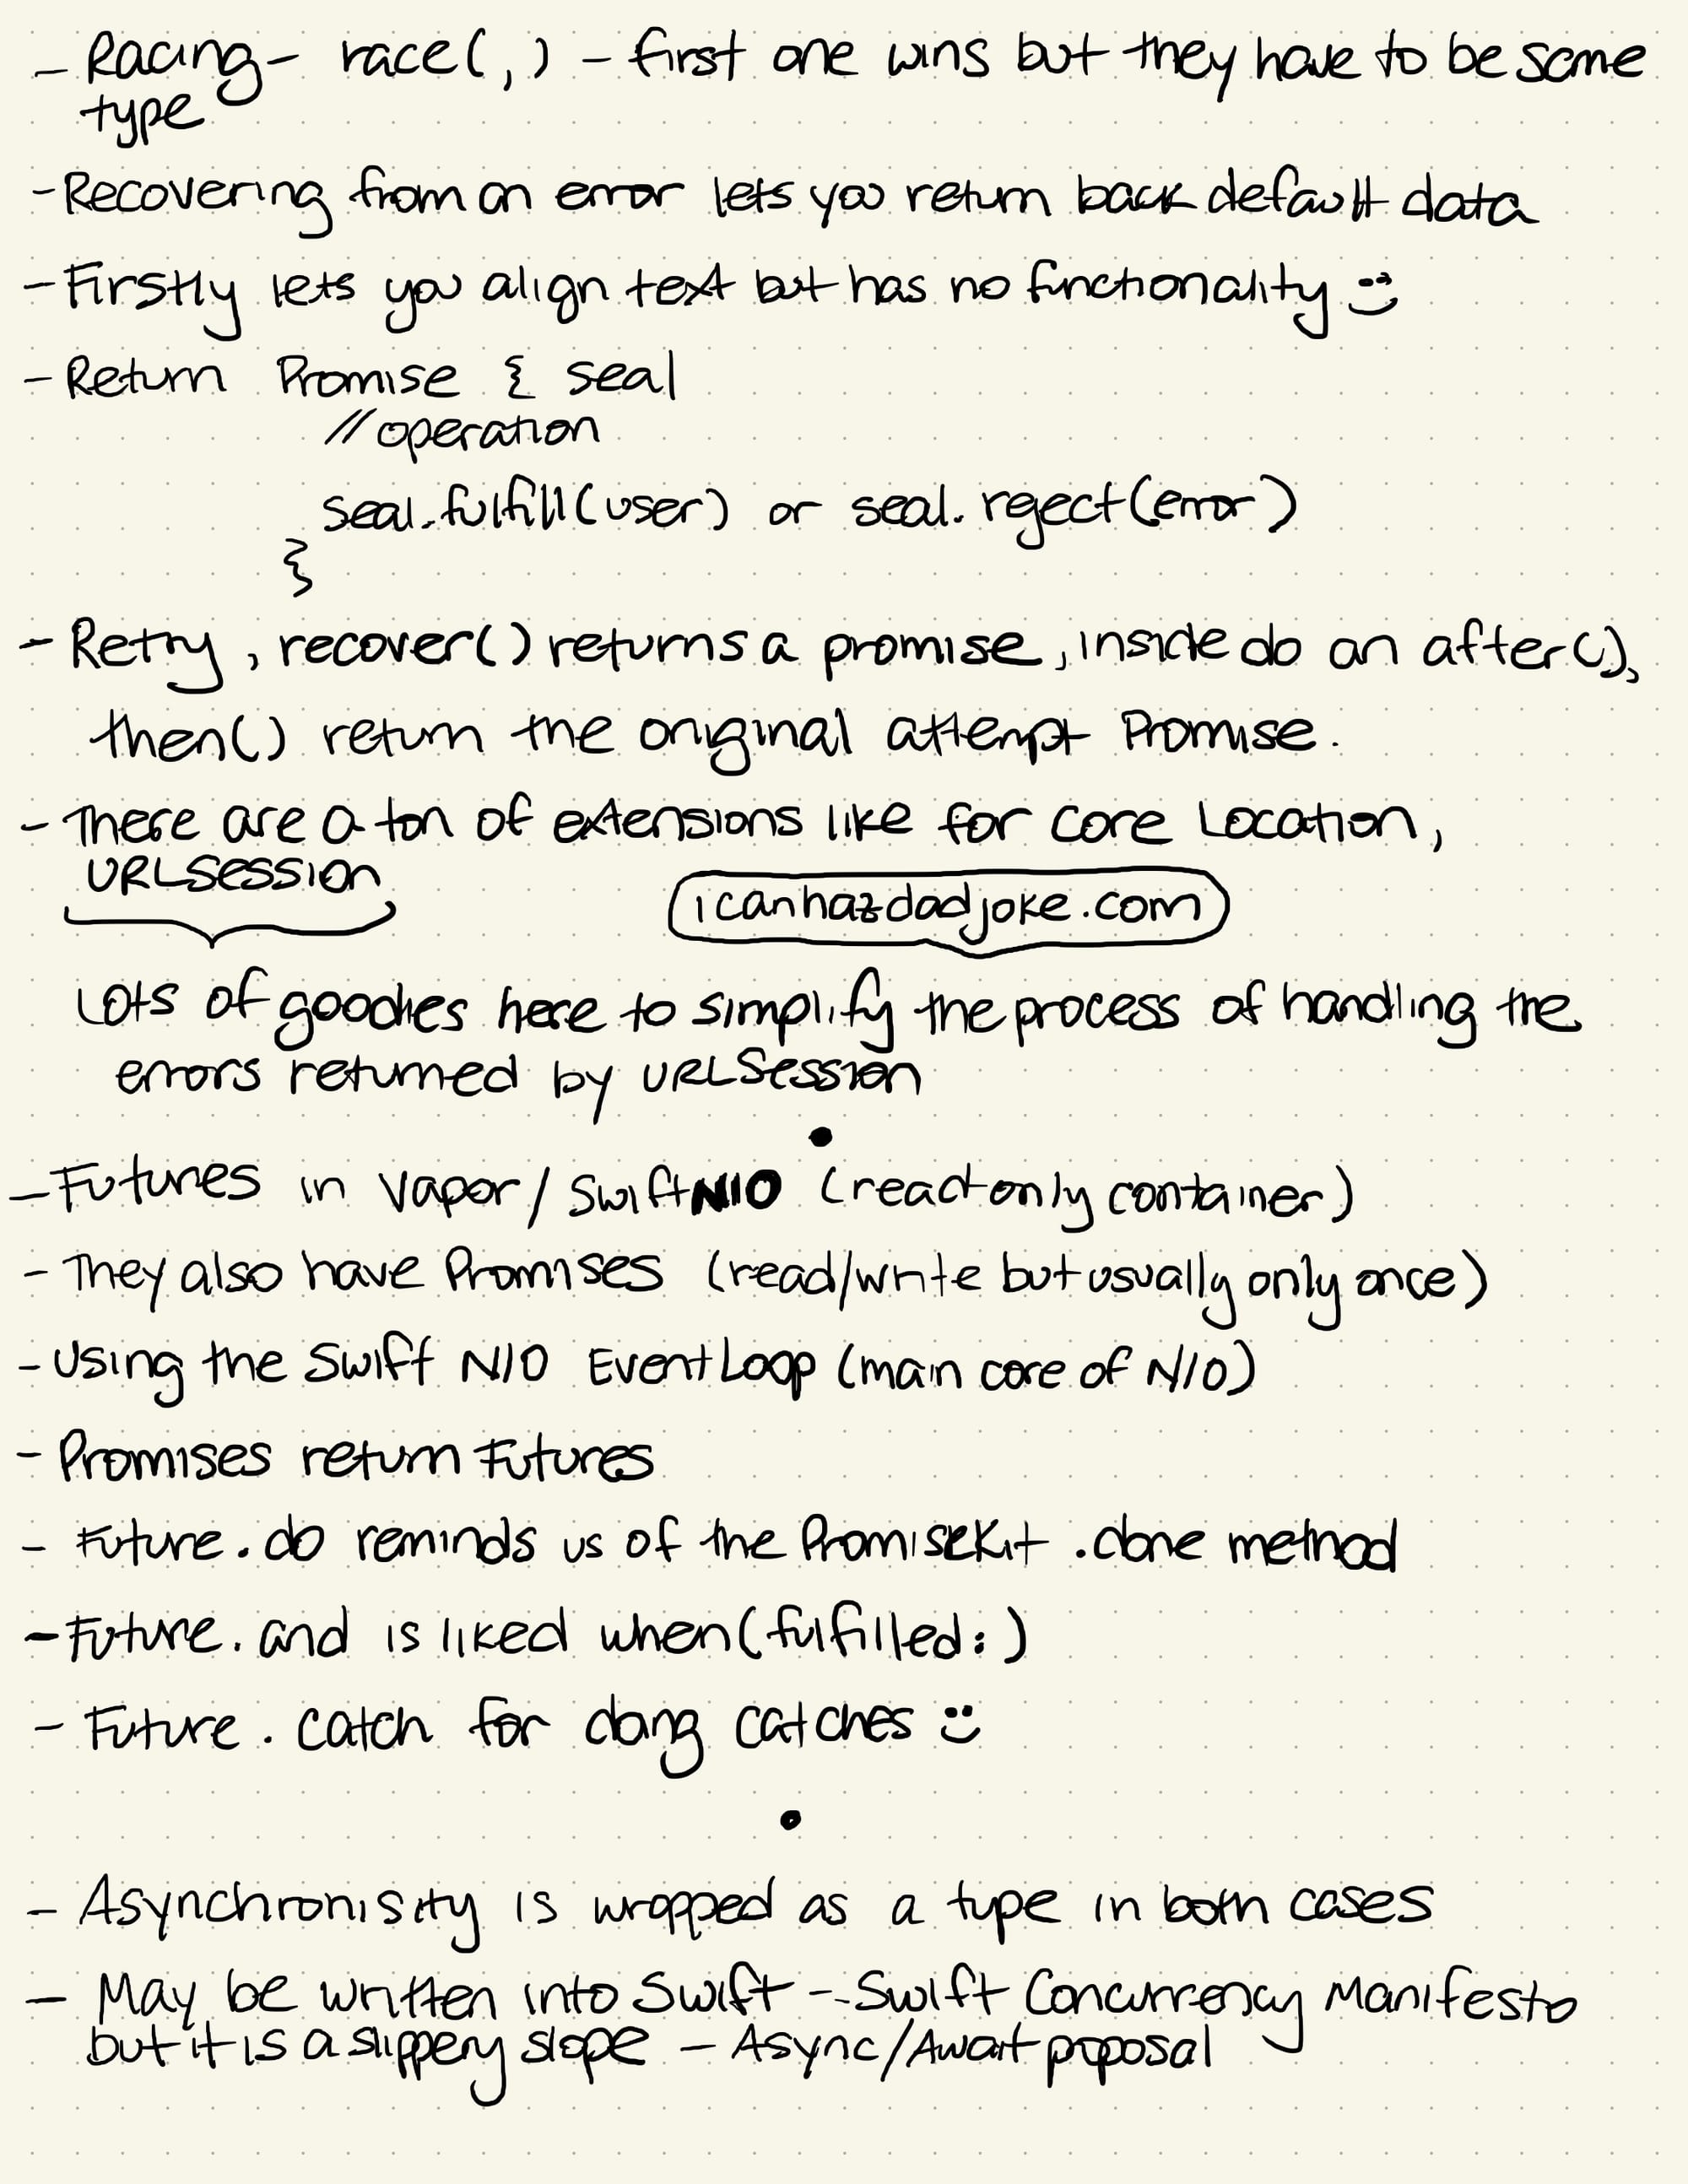 - Racing - race(,) - first one wins but they have to be same
type
- Recovering from an error lets you return back default data
- Firstly lets you align text but has no functionality
- Return Promise { seal
// operation
seal.fulfill(user) or seal.reject(error)
}
- Retry, recover() returns a promise, inside do an after(),
then() return the original attempt Promise.
- There are a ton of extensions like for Core Location,
URLSession
icanhazdadjoke.com
Lots of goodies here to simplify the process of handling the
errors returned by URLSession
- Futures in Vapor/SwiftNIO (read only container)
- They also have Promises (read/write but usually only once)
- Using the Swift NIO EventLoop (main core of NIO)
- Promises return Futures
- Future.do reminds us of the PromiseKit .done method
- Future.and is liked when(fulfilled:)
- Future.catch for doing catches
- Asynchronisity is wrapped as a type in both cases
- May be written into Swift -- Swift Concurrency Manifesto
but it is a slippery slope - Async/Await proposal